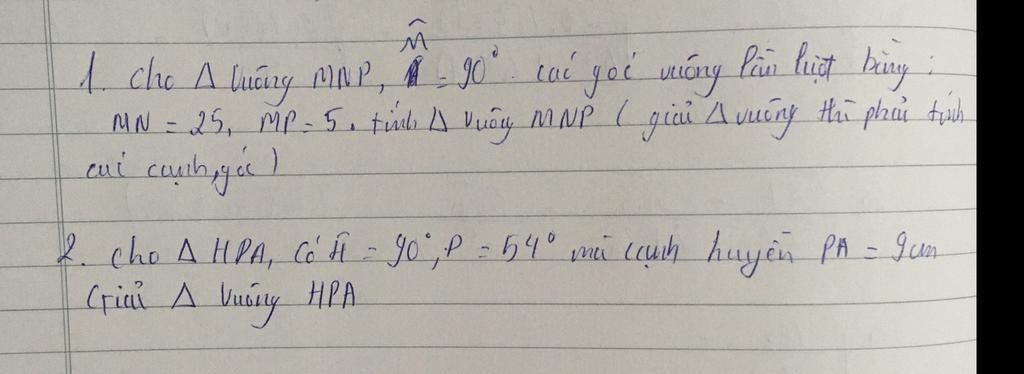 M̂
1. Cho Δ vuông MNP, = 90°. các góc vuông lần lượt bằng:
MN = 25, MP = 5. tính Δ vuông MNP ( giải Δ vuông thì phải tính
các cạnh, góc )
2. Cho Δ HPA, có Ĥ = 90°, P = 54° mà cạnh huyền PA = 9cm
Giải Δ vuông HPA